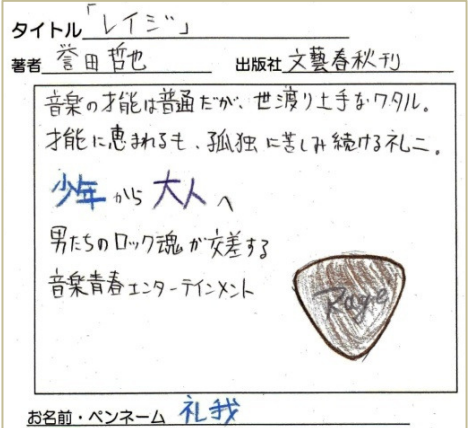 タイトル 「レイジ」
著者 誉田哲也 出版社 文藝春秋刊
音楽の才能は普通だが、世渡り上手なワタル。
才能に恵まれるも、孤独に苦しみ続ける礼二。
少年から大人へ
男たちのロック魂が交差する
音楽青春エンターテインメント
Rage
お名前・ペンネーム 礼我